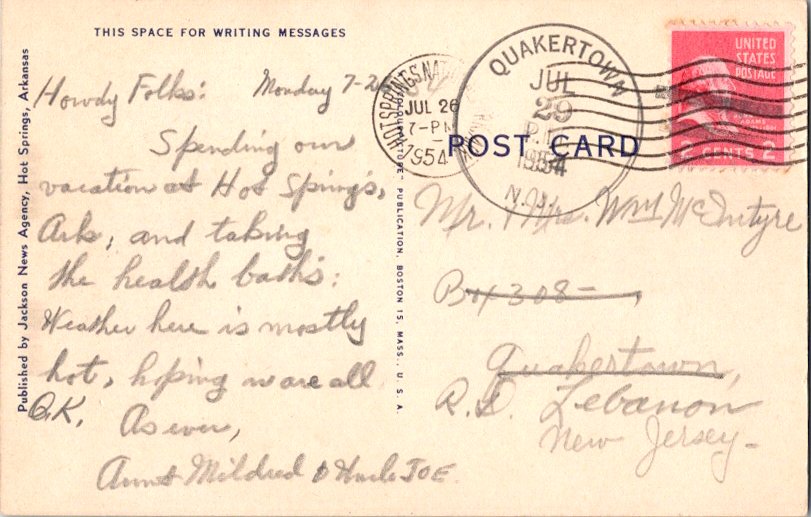 THIS SPACE FOR WRITING MESSAGES
Published by Jackson News Agency, Hot Springs, Arkansas
Howdy Folks: Monday 7-2
Spending our
vacation at Hot Springs,
Ark, and taking
the health baths:
Weather here is mostly
hot, hoping you are all
O.K. As ever,
Aunt Mildred & Uncle JOE
PUBLICATION, BOSTON 15, MASS., U. S. A.
HOT SPRINGS NAT
JUL 26
7-PM
1954
QUAKERTOWN
JUL
29
P.M.
1954
N.J.
UNITED
STATES
POSTAGE
ADAMS
2 CENTS 2
POST CARD
Mr. & Mrs. Wm McIntyre
Box 308-
Quakertown,
R.D. Lebanon
New Jersey-